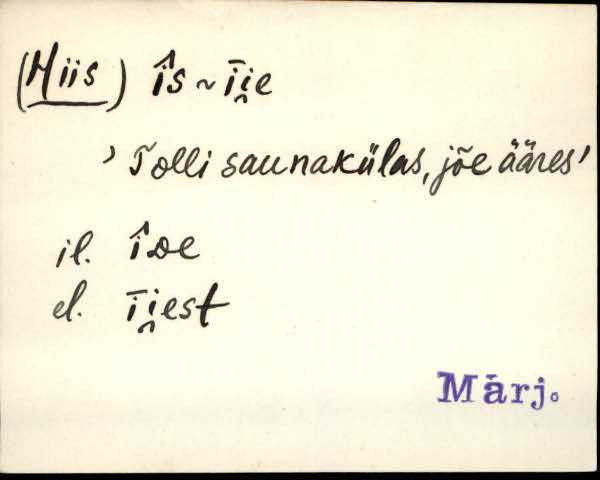 (Hiis) îs ~ īi̯e
’Tolli saunakülas, jõe ääres’
il. îsse
el. īi̯est
Märj.